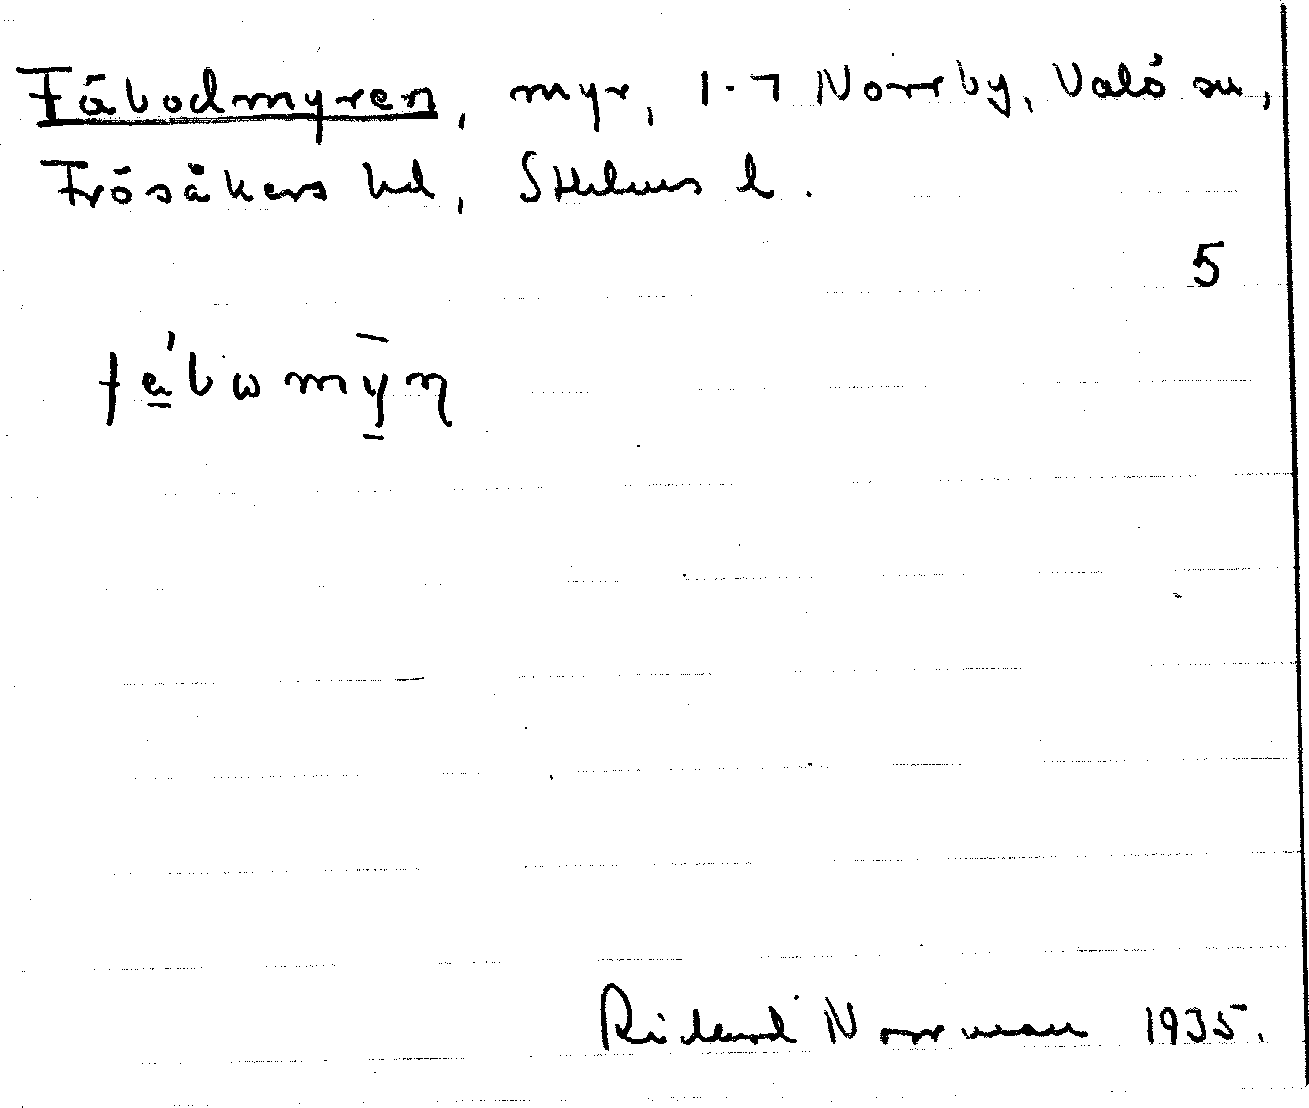 Fäbodmyren, myr, 1-7 Norrby, Valö sn,
Frösåkers hd, Sthlms l.
5
Rickard Norrman 1935.